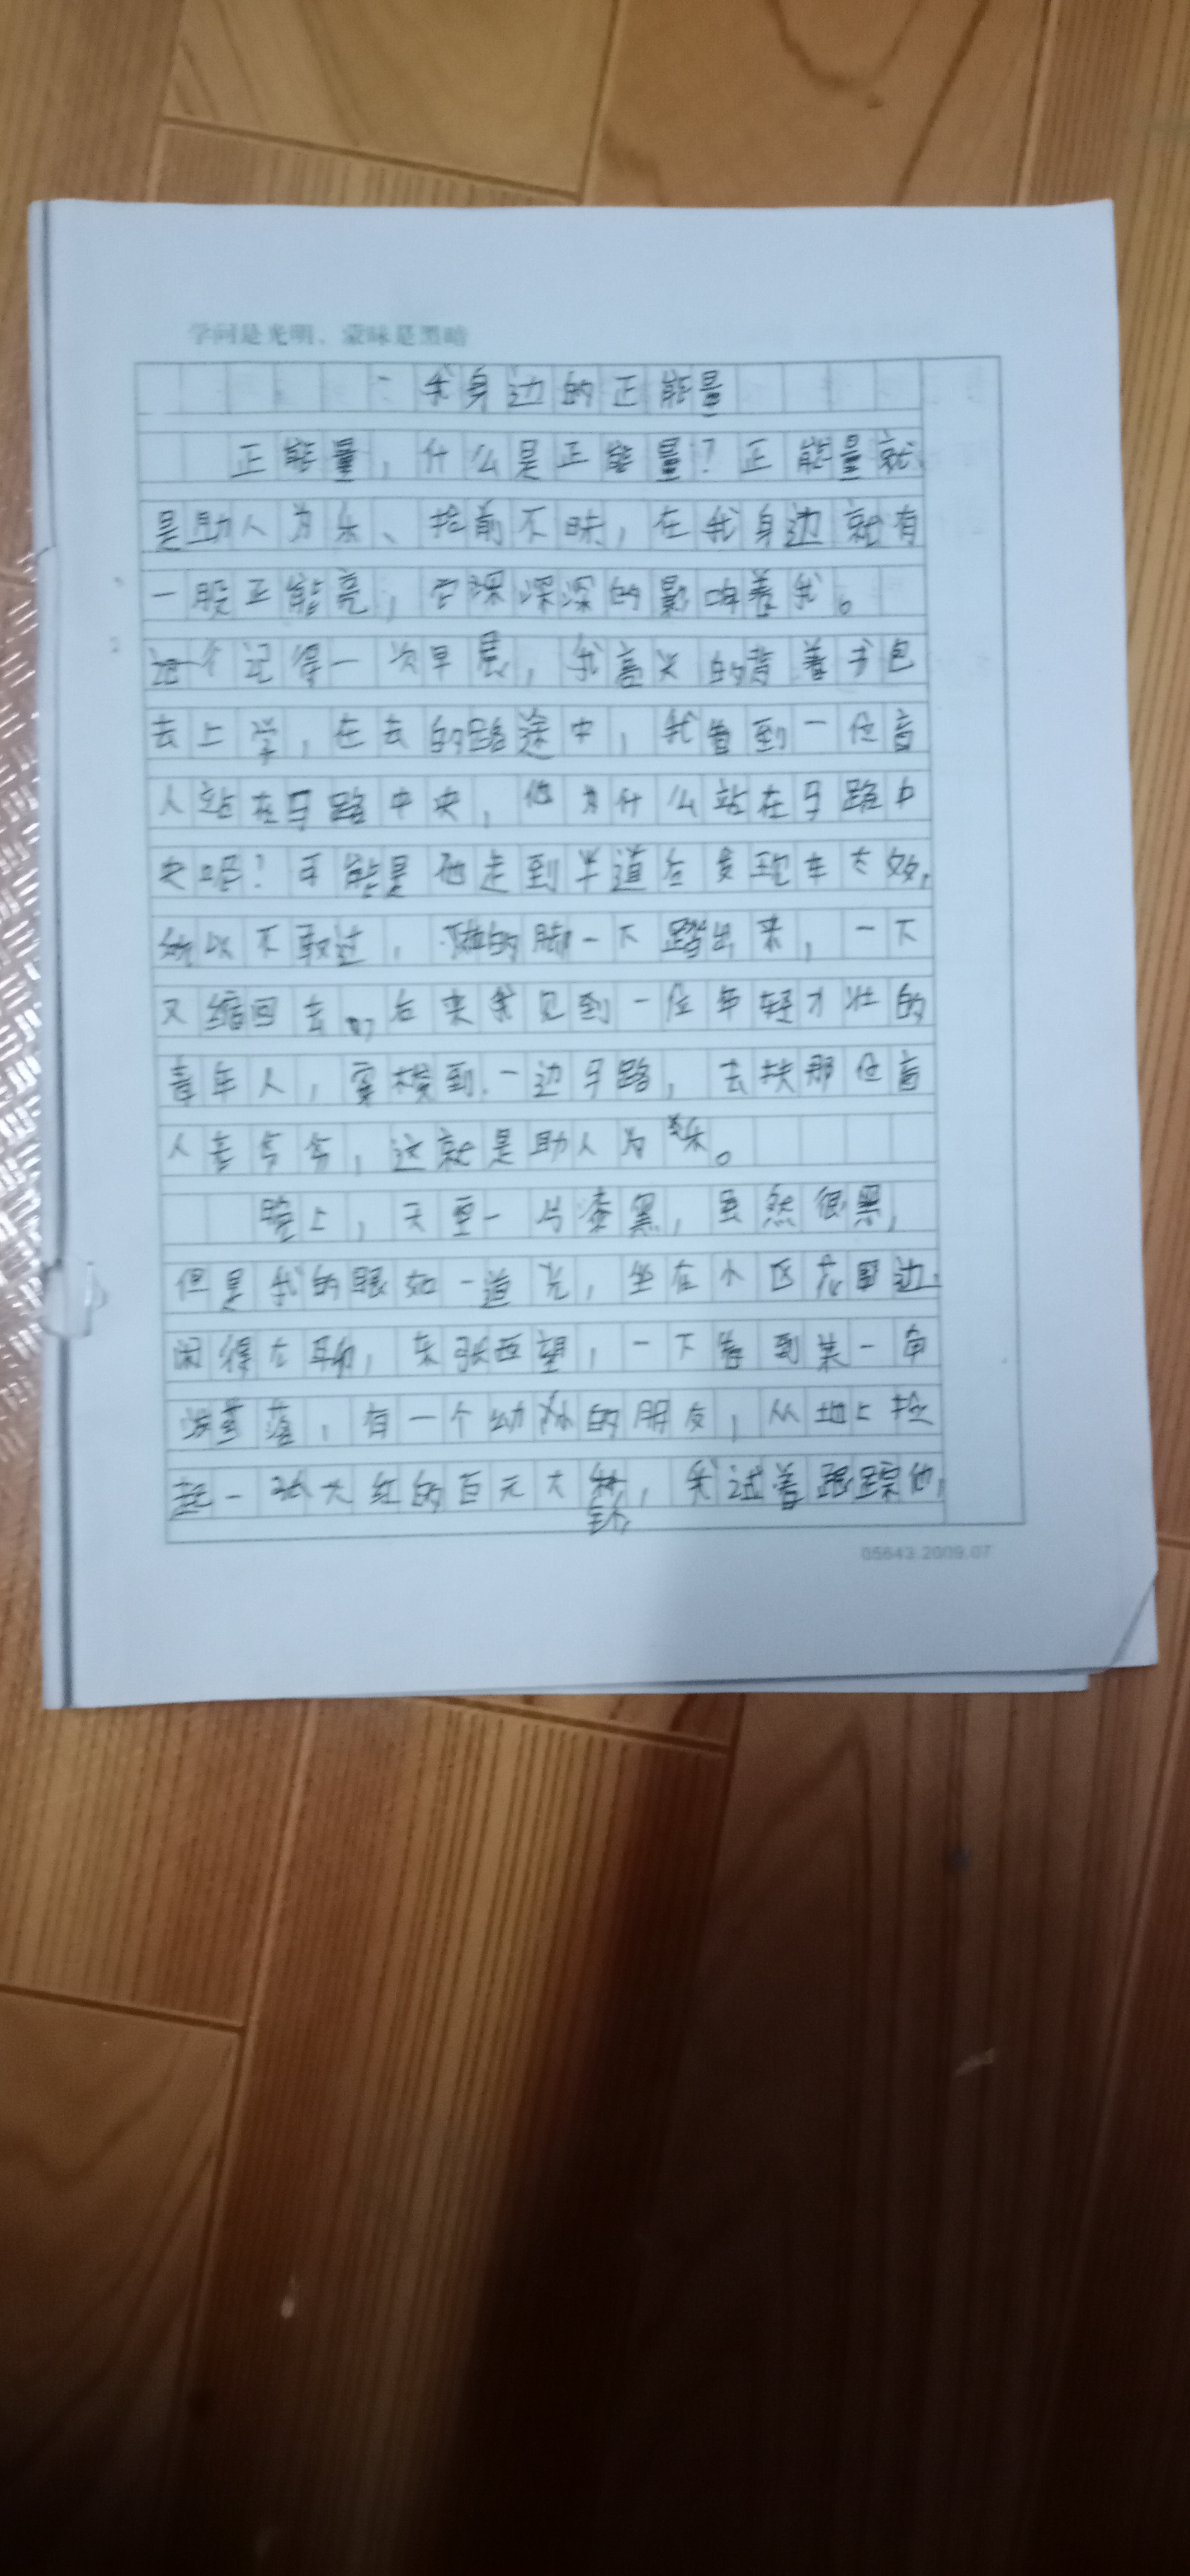 学问是光明，蒙昧是黑暗
我身边的正能量
正能量，什么是正能量？正能量就
是助人为乐、拾前不昧，在我身边就有
一股正能亮，它深深深的影响着我。
记得一次早晨，我高兴的背着书包
去上学，在去的路途中，我看到一位盲
人站在马路中央，他为什么站在马路中
央呢？可能是他走到半道后发现车太多，
所以不敢过，的脚一下踏出来，一下
又缩回去，后来我见到一位年轻才壮的
青年人，穿梭到一边马路，去扶那位盲
人老爷爷，这就是助人为乐。
晚上，天空一片漆黑，虽然很黑，
但是我的眼如一道光，坐在小区花园边，
闲得无聊，东张西望，一下看到某一角
落，有一个幼小的朋友，从地上捡
起一张大红的百元大钞，我试着跟踪他，
05643.2009.07